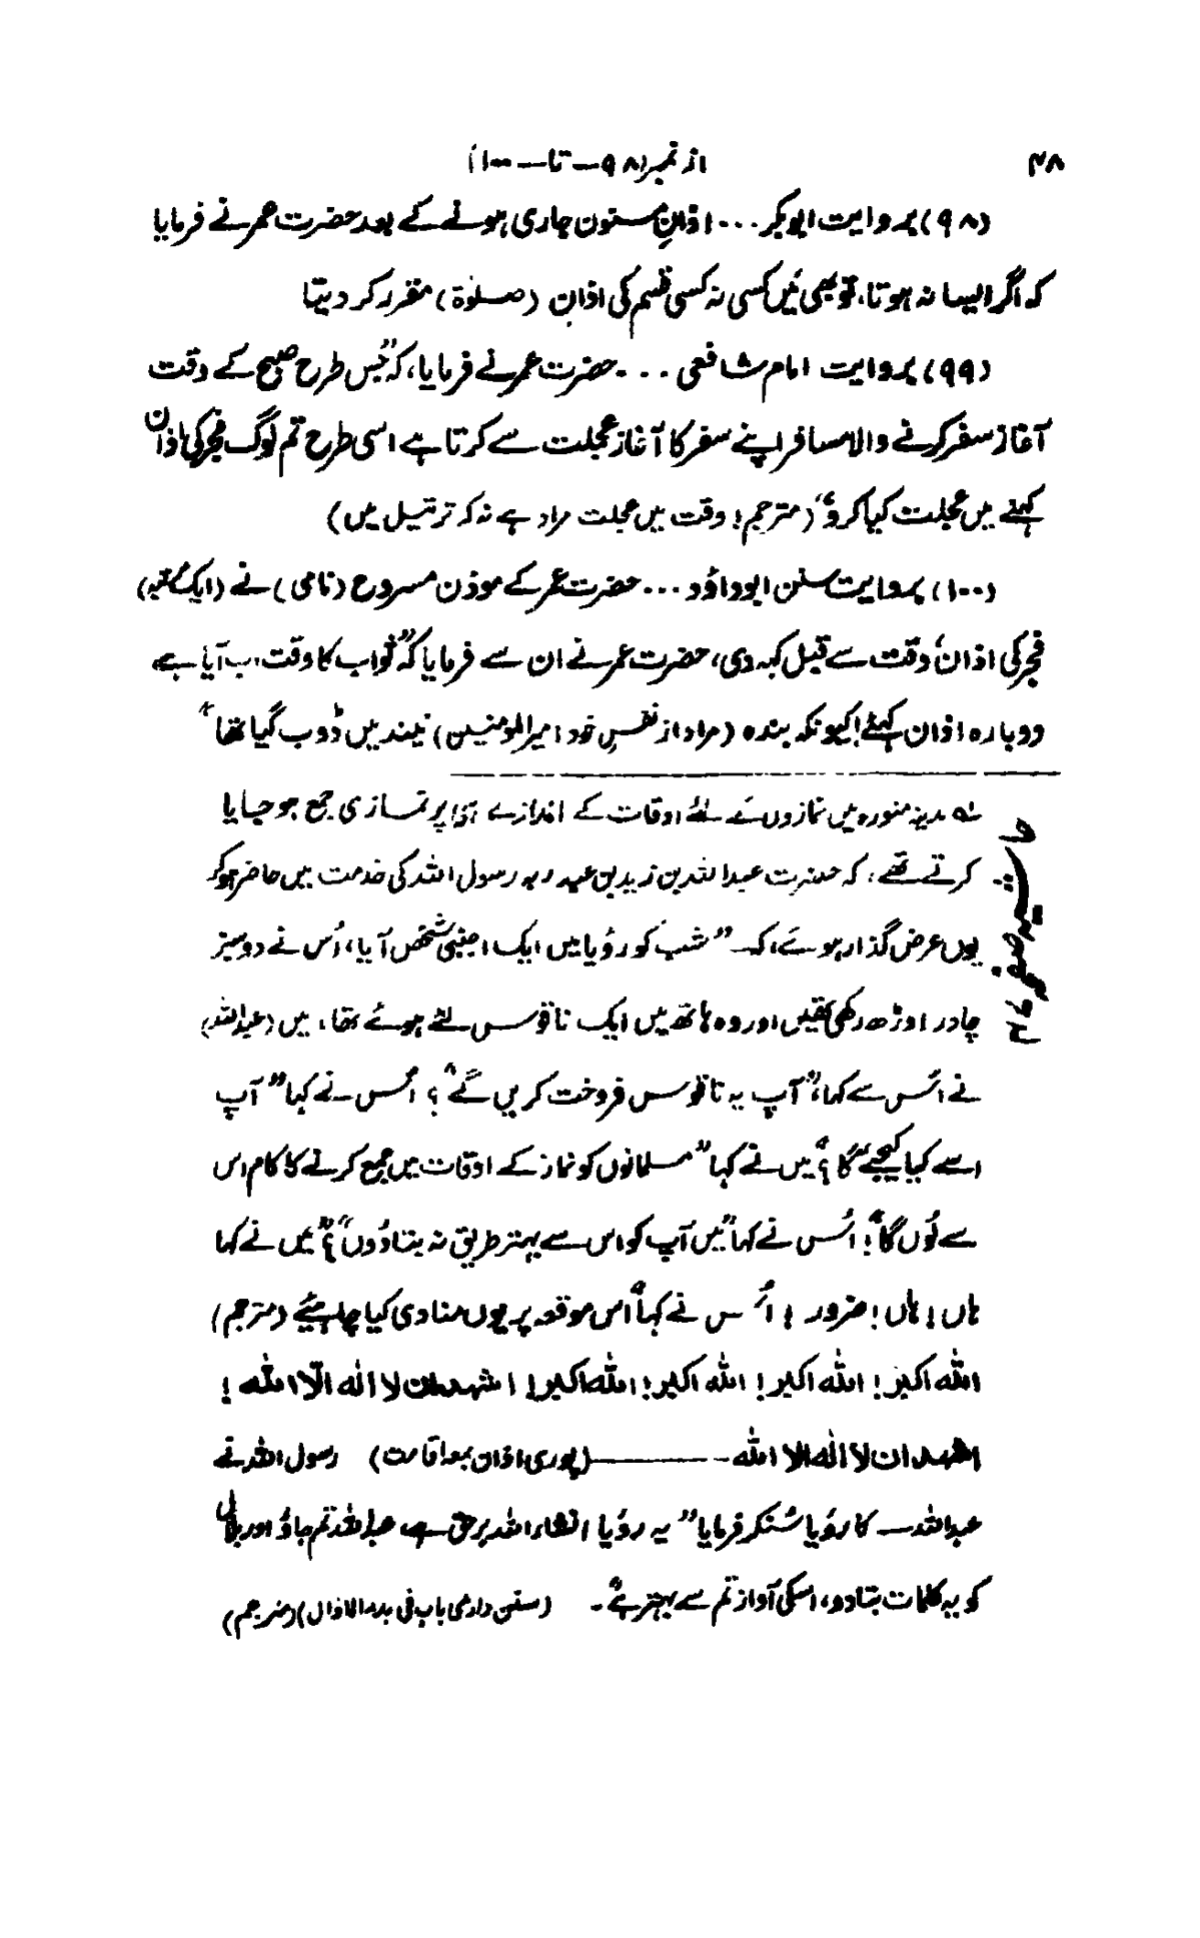 ۴۸
از نمبر (۹۸ — تا — ۱۰۰)
(۹۸) بروایت ابوبکر ... اذانِ مسنون جاری ہونے کے بعد حضرت عمر نے فرمایا
کہ اگر ایسا نہ ہوتا، تو بھی مَیں کسی نہ کسی قسم کی اذان (صلوٰۃ) مقرر کر دیتا
(۹۹) بروایت امام شافعی ... حضرت عمر نے فرمایا، کہ "جس طرح صبح کے وقت
آغاز سفر کرنے والا مسافر اپنے سفر کا آغاز عجلت سے کرتا ہے اسی طرح تم لوگ فجر کی اذان
کہنے میں عجلت کیا کرو" (مترجم! وقت میں عجلت مراد ہے نہ کہ ترتیل میں)
(۱۰۰) بروایت سنن ابوداؤد ... حضرت عمر کے موذن مسروح (نامی) نے (ایک مرتبہ)
فجر کی اذان وقت سے قبل کہہ دی، حضرت عمر نے ان سے فرمایا کہ "خواب کا وقت اب آیا ہے
دوبارہ اذان کہئے! کیونکہ بندہ (مراد از نفسِ خود امیرالمومنین) نیند میں ڈوب گیا تھا"
مدینہ منورہ میں نمازوں کے لئے اوقات کے اندازے پر نمازی جمع ہو جایا
کرتے تھے، کہ حضرت عبداللہ بن زید بن عبد ربہ رسول اللہ کی خدمت میں حاضر ہو کر
یوں عرض گذار ہوئے، کہ "شب کو رؤیا میں ایک اجنبی شخص آیا، اُس نے دو سبز
چادر اوڑھ رکھی تھیں اور وہ ہاتھ میں ایک ناقوس لئے ہوئے تھا، میں (عبداللہ)
نے اُس سے کہا، "آپ یہ ناقوس فروخت کریں گے"؟ اُس نے کہا "آپ
اسے کیا کیجیے گا؟" میں نے کہا "مسلمانوں کو نماز کے اوقات میں جمع کرنے کا کام اس
سے لُوں گا"! اُس نے کہا "میں آپ کو اس سے بہتر طریق نہ بتا دُوں"؟ میں نے کہا
ہاں! ہاں! ضرور! اُس نے کہا "اس موقعہ پر یوں منادی کیا چاہیئے (مترجم)
اللہ اکبر! اللہ اکبر! اللہ اکبر! اللہ اکبر! اشہد ان لا الٰہ الّا اللہ!
اشہد ان لا الٰہ الا اللہ ——— (پوری اذان بمعہ اقامت) رسول اللہ نے
عبداللہ کا رؤیا سُنکر فرمایا "یہ رؤیا انشاء اللہ برحق ہے، عبداللہ تم جاؤ اور بلال
کو یہ کلمات بتا دو، اسکی آواز تم سے بہتر ہے"۔ (سنن دارمی باب فی بدء الاذان) (مترجم)